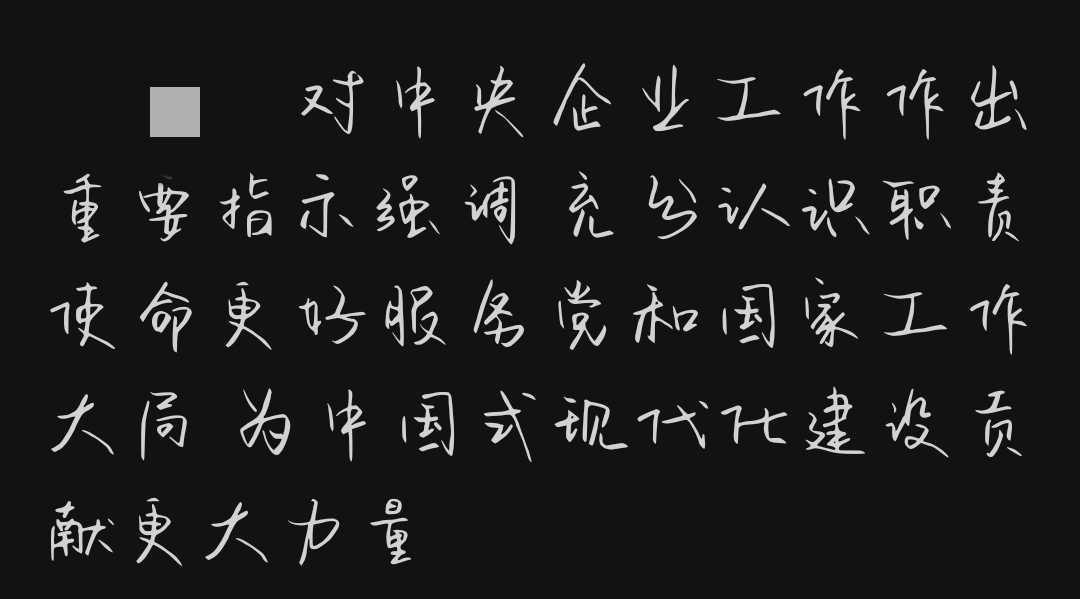 对中央企业工作作出
重要指示强调 充分认识职责
使命更好服务党和国家工作
大局 为中国式现代化建设贡
献更大力量